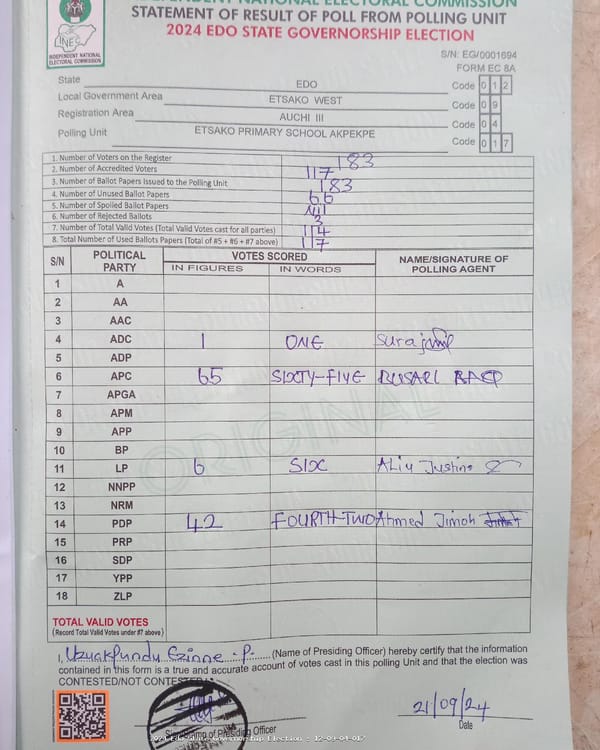 INDEPENDENT NATIONAL ELECTORAL COMMISSION
STATEMENT OF RESULT OF POLL FROM POLLING UNIT
2024 EDO STATE GOVERNORSHIP ELECTION
INEC
INDEPENDENT NATIONAL
ELECTORAL COMMISSION
S/N: EG/0001694
FORM EC 8A
State EDO Code 0 1 2
Local Government Area ETSAKO WEST Code 0 9
Registration Area AUCHI III Code 0 4
Polling Unit ETSAKO PRIMARY SCHOOL AKPEKPE Code 0 1 7
1. Number of Voters on the Register 183
2. Number of Accredited Voters 117
3. Number of Ballot Papers Issued to the Polling Unit 183
4. Number of Unused Ballot Papers 66
5. Number of Spoiled Ballot Papers Nil
6. Number of Rejected Ballots 3
7. Number of Total Valid Votes (Total Valid Votes cast for all parties) 114
8. Total Number of Used Ballots Papers (Total of #5 + #6 + #7 above) 117
S/N POLITICAL PARTY VOTES SCORED NAME/SIGNATURE OF POLLING AGENT
IN FIGURES IN WORDS
1 A
2 AA
3 AAC
4 ADC 1 ONE Suraj
5 ADP
6 APC 65 SIXTY-FIVE
7 APGA
8 APM
9 APP
10 BP
11 LP 6 SIX Aliu Justina
12 NNPP
13 NRM
14 PDP 42 FOURTH-TWO Ahmed Jimoh
15 PRP
16 SDP
17 YPP
18 ZLP
ORIGINAL
TOTAL VALID VOTES
(Record Total Valid Votes under #7 above)
I, Ezinne .P. (Name of Presiding Officer) hereby certify that the information
contained in this form is a true and accurate account of votes cast in this polling Unit and that the election was
CONTESTED/NOT CONTESTED
of Presiding Officer
21/09/24
Date